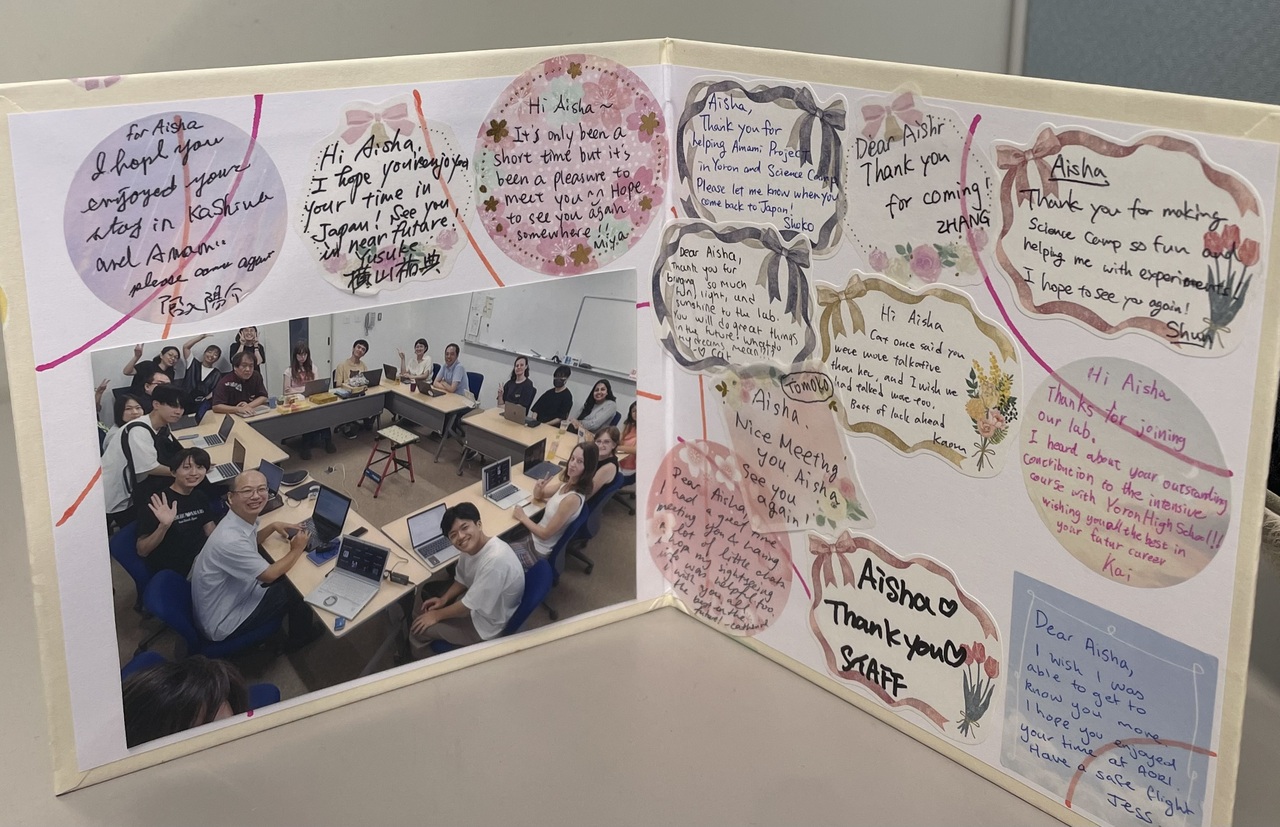 for Aisha
I hope you
enjoyed your
stay in Kashiwa
and Amami.
please come again
Hi Aisha,
I hope you enjoyed
your time in
Japan! See you
in near future!
Yusuke
横山祐典
Hi Aisha ~
It's only been a
short time but it's
been a pleasure to
meet you ^^ Hope
to see you again
somewhere!!
Miya
Aisha,
Thank you for
helping Amami Project
in Yoron and Science Camp
Please let me know when you
come back to Japan!
Shoko
Dear Aishr
Thank you
for coming!
ZHANG
Aisha
Thank you for making
Science Camp so fun and
helping me with experiments!
I hope to see you again!
Shun
Dear Aisha,
Thank you for
bringing so much
fun, light, and
sunshine to the lab.
You will do great things
in the future! Whatever do
my dreams mean!!!
♡ Cat
Hi Aisha
Cax once said you
were more talkative
than her, and I wish we
had talked more too.
Best of luck ahead
Kaoru
Tomoko
Aisha.
Nice Meeting
you Aisha
See you
again!
Dear Aisha,
I had a great time
meeting you & having
lot of little chats
hope my sightseeing
was helpful too.
wish you all
the best in the
future!
Aisha♡
Thank you♡
STAFF
Hi Aisha
Thanks for joining
our lab.
I heard about your outstanding
contribution to the intensive
course with Yoron High School!!
wishing you all the best in
your futur career
Kai
Dear Aisha,
I wish I was
able to get to
know you more.
I hope you enjoyed
your time at AORI.
Have a safe flight
Jess